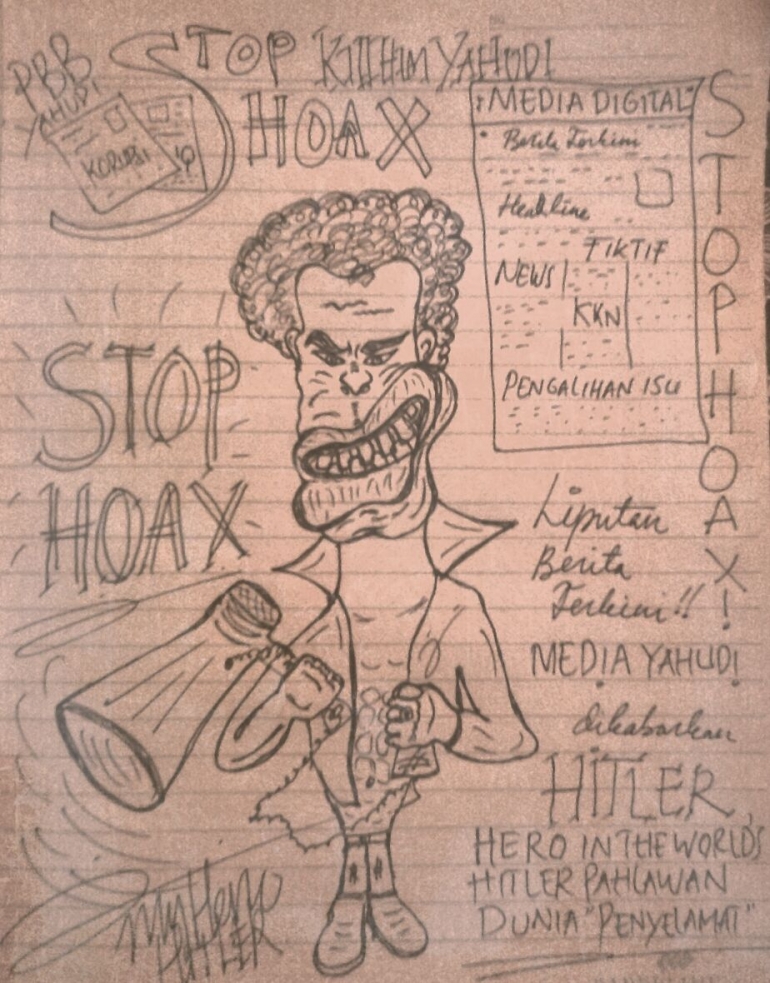 PBB
YAHUDI
KORUPSI
STOP KILL HIM YAHUDI
HOAX
"MEDIA DIGITAL"
Berita Terkini
Headline
FIKTIF
NEWS
KKN
PENGALIHAN ISU
STOP HOAX!
STOP
HOAX
Liputan
Berita
Terkini!!
MEDIA YAHUDI
dikabarkan
HITLER,
HERO IN THE WORLD'S
HITLER PAHLAWAN
DUNIA "PENYELAMAT"
My Hero
HITLER